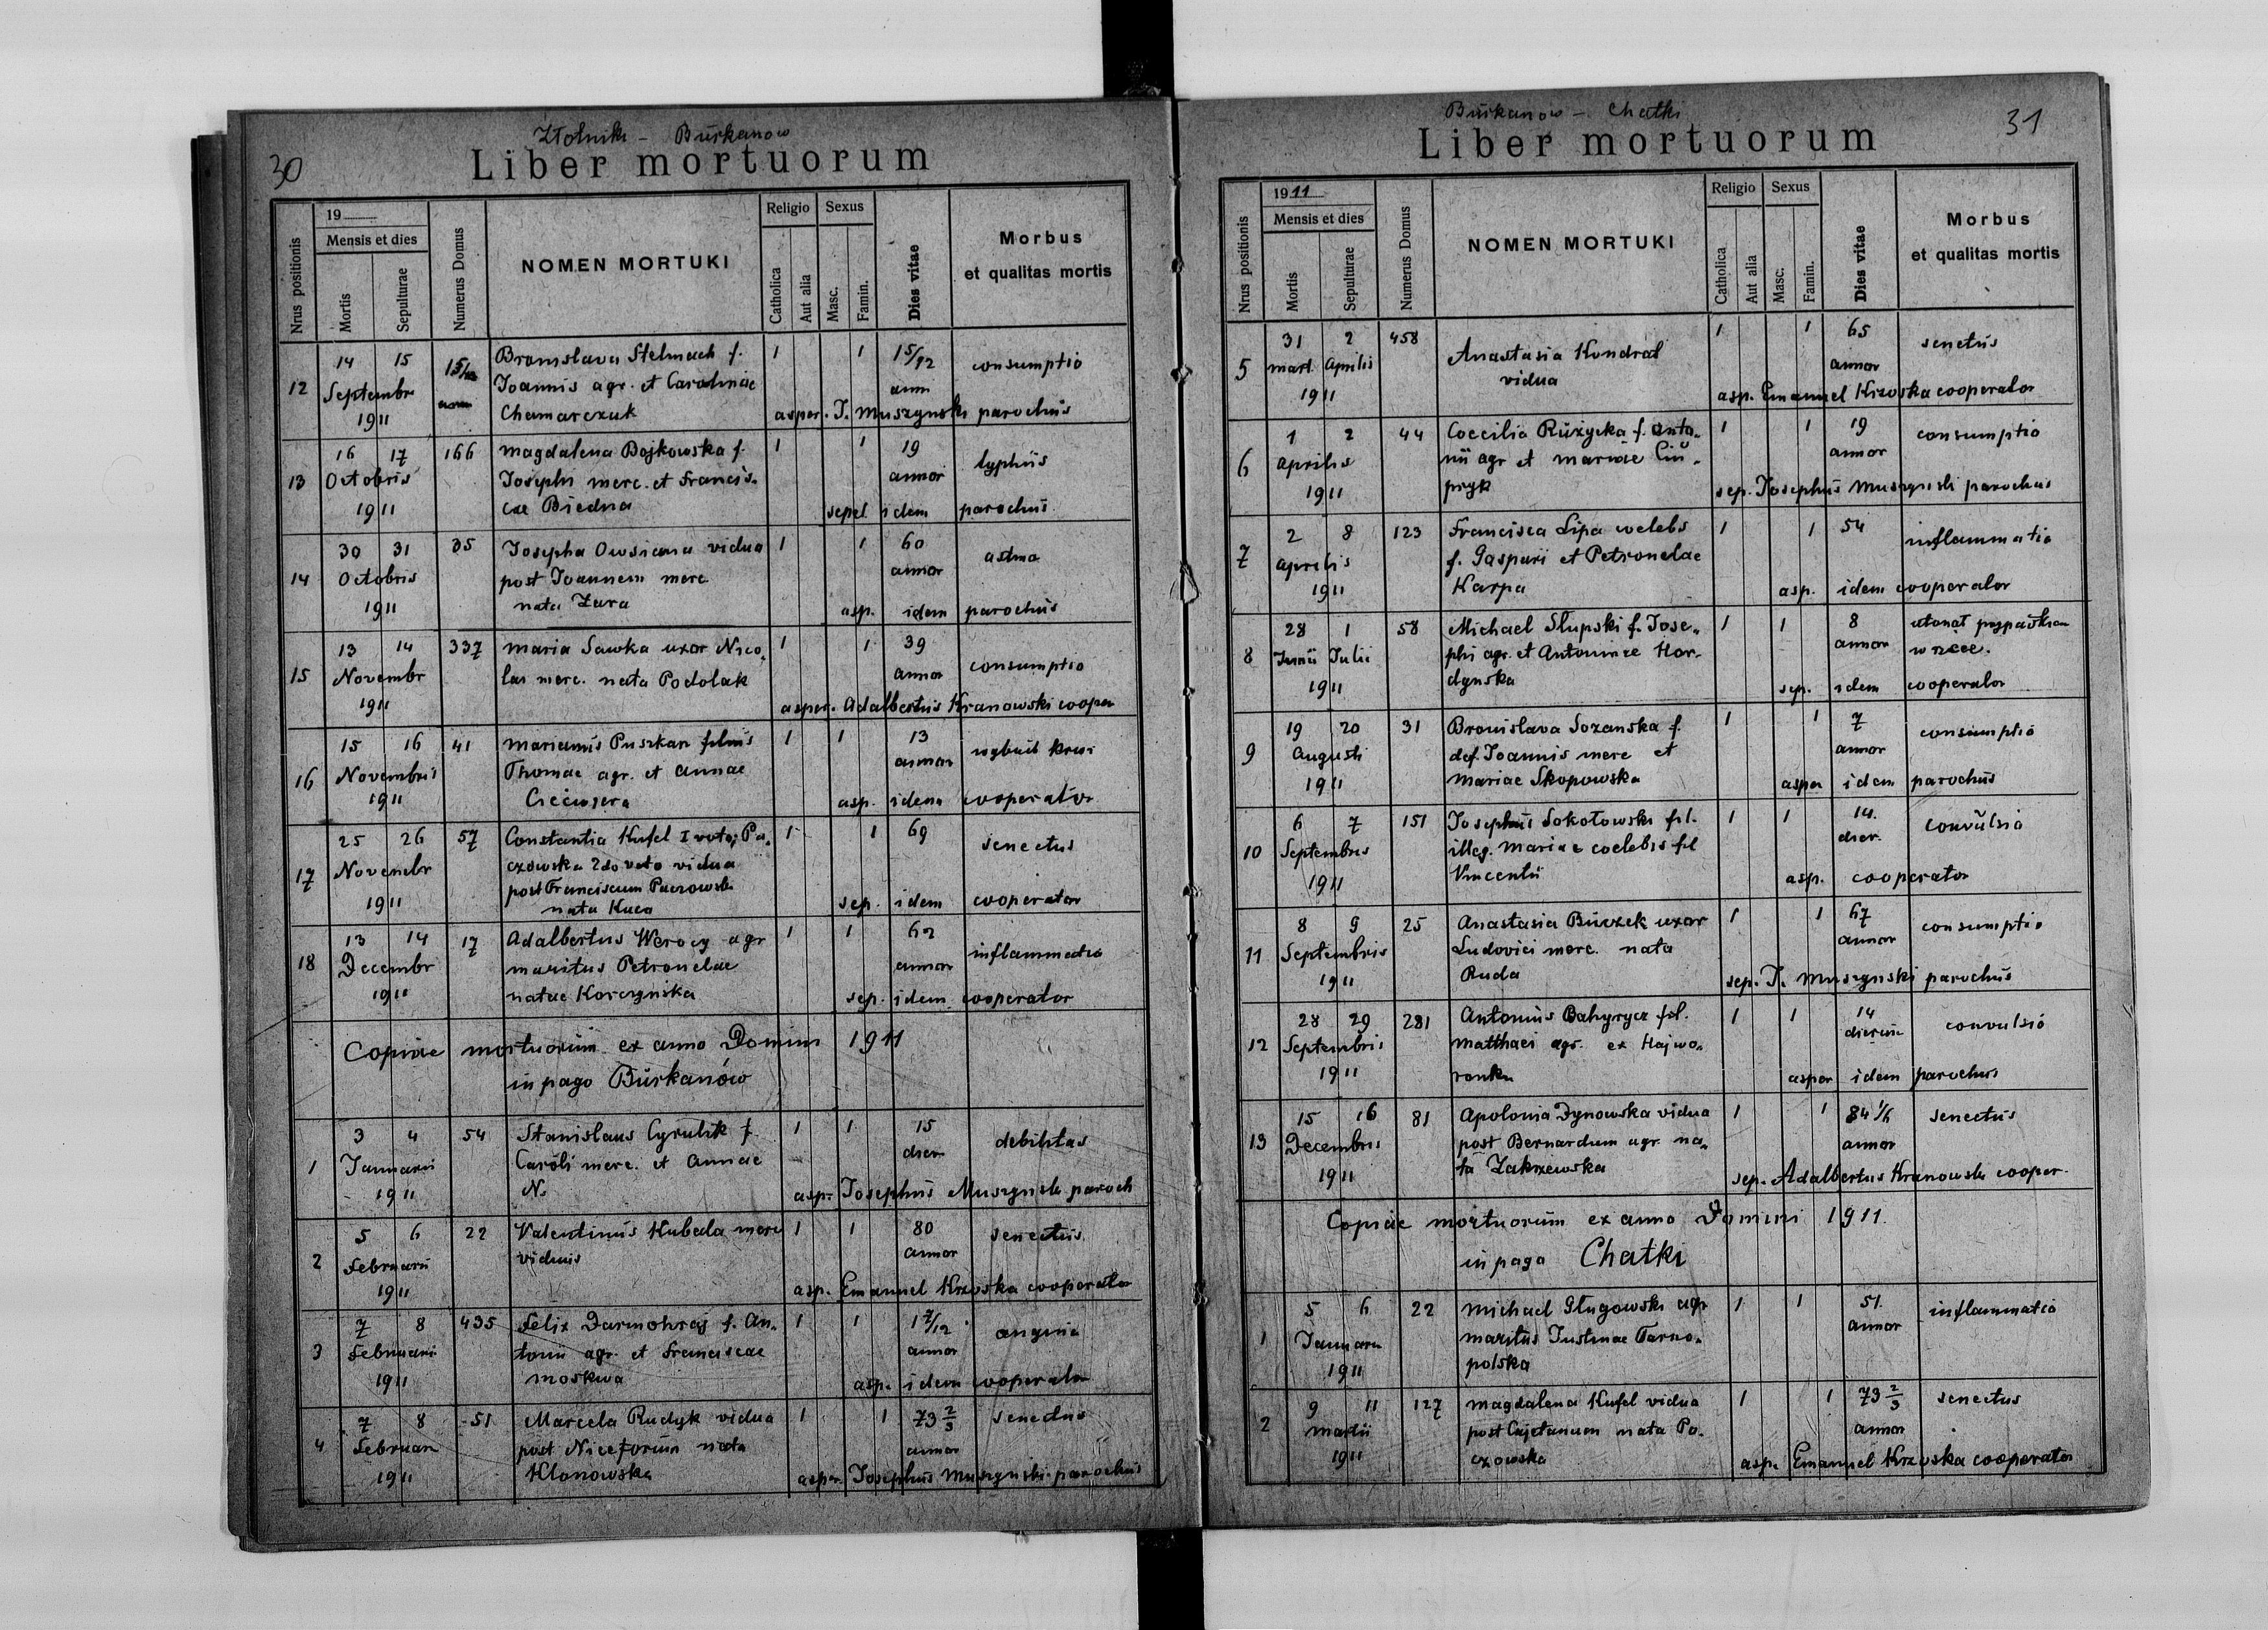 30
Złotniki - Burkanow
Liber mortuorum
Nrus positionis
19
Mensis et dies
Mortis
Sepulturae
Numerus Domus
NOMEN MORTUKI
Religio
Catholica
Aut alia
Sexus
Masc.
Famin.
Dies vitae
Morbus
et qualitas mortis
12 14 15 Bronislava Stelmach f. 1 1 15/12 consumptio
Septembr Joannis agr. et Carolinae ann
1911 Chamarczuk asper. J. Muszynski parochus
13 16 17 166 Magdalena Bojkowska f. 1 1 19 typhus
Octobris Josephi merc. et Francis-
annor
1911 cae Biedna sepel idem parochus
14 30 31 35 Josepha Owsiana vidua 1 1 60 astma
Octobris post Joannem merc annor
1911 nata Zura asp. idem parochus
15 13 14 337 Maria Sawka uxor Nico- 1 1 39 consumptio
Novembr lai merc. nata Podolak annor
1911 asper. Adalbertus Kranowski cooper
16 15 16 41 Marianus Puszkar filius 1 1 13 wybuch krwi
Novembris Thomae agr. et Annae annor
1911 asp. idem cooperator
17 25 26 57 Constantia Kufel I voto, Pa- 1 1 69 senectus
Novembr czowska 2do voto vidua
post Franciscum Paczowski
1911 nata Kuca sep. idem cooperator
18 13 14 17 Adalbertus Werocy agr 1 1 62 inflammatio
Decembr maritus Petronelae annor
1911 natae Korczynska sep. idem cooperator
Copiae mortuorum ex anno Domini 1911
in pago Burkanów
1 3 4 54 Stanislaus Cyrulik f. 1 1 15 debilitas
Januarii Caroli merc. et Annae dier
1911 N. asp. Josephus Muszynski paroch
2 5 6 22 Valentinus Kubala merc 1 1 80 senectus
Februarii viduus annor
1911 asp. Emanuel Krzoska cooperator
3 7 8 435 Felix Darmohraj f. An- 1 1 1 7/12 angina
Februarii tonii agr. et Franciscae annor
1911 Moskwa asp. idem cooperator
4 7 8 51 Marcela Rudyk vidua 1 1 73 2/3 senectus
Februari post Niceforum nata annor
1911 Klonowska asper. Josephus Muszynski parochus
31
Burkanow - Chatki
Liber mortuorum
Nrus positionis
1911
Mensis et dies
Mortis
Sepulturae
Numerus Domus
NOMEN MORTUKI
Religio
Catholica
Aut alia
Sexus
Masc.
Famin.
Dies vitae
Morbus
et qualitas mortis
5 31 2 458 Anastasia Kondrat 1 1 65 senectus
mart. Aprilis vidua annor
1911 asp. Emanuel Krzoska cooperator
6 1 2 44 Coecilia Ruzycka f. Anto- 1 1 19 consumptio
Aprilis nii agr et Mariae Ciu- annor
1911 pryk sep. Josephus Muszynski parochus
7 2 8 123 Francisca Lipa coelebs 1 1 54 inflammatio
Aprilis f. Gaspari et Petronelae
1911 Karpa asp. idem cooperator
8 28 1 58 Michael Slupski f. Jose- 1 1 8 utonął przypadkiem
Junii Julii phi agr. et Antoninae Hor- annor w rzece.
1911 dynska sep. idem cooperator
9 19 20 31 Bronislava Sozanska f. 1 1 7 consumptio
Augusti def. Joannis merc et annor
1911 Mariae Skopowska asper idem parochus
10 6 7 151 Josephus Sokołowski fil. 1 1 14. convulsio
Septembris illeg. Mariae coelebis fil dier.
1911 Vincentii asp. cooperator
11 8 9 25 Anastasia Buczek uxor 1 1 67 consumptio
Septembris Ludovici merc. nata annor
1911 Ruda sep. J. Muszynski parochus
12 28 29 281 Antonius Bahyrycz fil. 1 1 14 convulsio
Septembris Matthaei agr. ex Hajwo- dierum
1911 ronka asper idem parochus
13 15 16 81 Apolonia Dynowska vidua 1 1 84 1/6 senectus
Decembris post Bernardum agr. na- annor
1911 ta Zakrzewska sep. Adalbertus Kranowski cooper.
Copiae mortuorum ex anno Domini 1911.
in pago Chatki
1 5 6 22 Michael Gługowski agr 1 1 51. inflammatio
Januarii maritus Justinae Tarno- annor
1911 polska
2 9 11 127 Magdalena Kufel vidua 1 1 73 2/3 senectus
Martii post Cajetanum nata Pa- annor
1911 czowska asp. Emanuel Krzoska cooperator